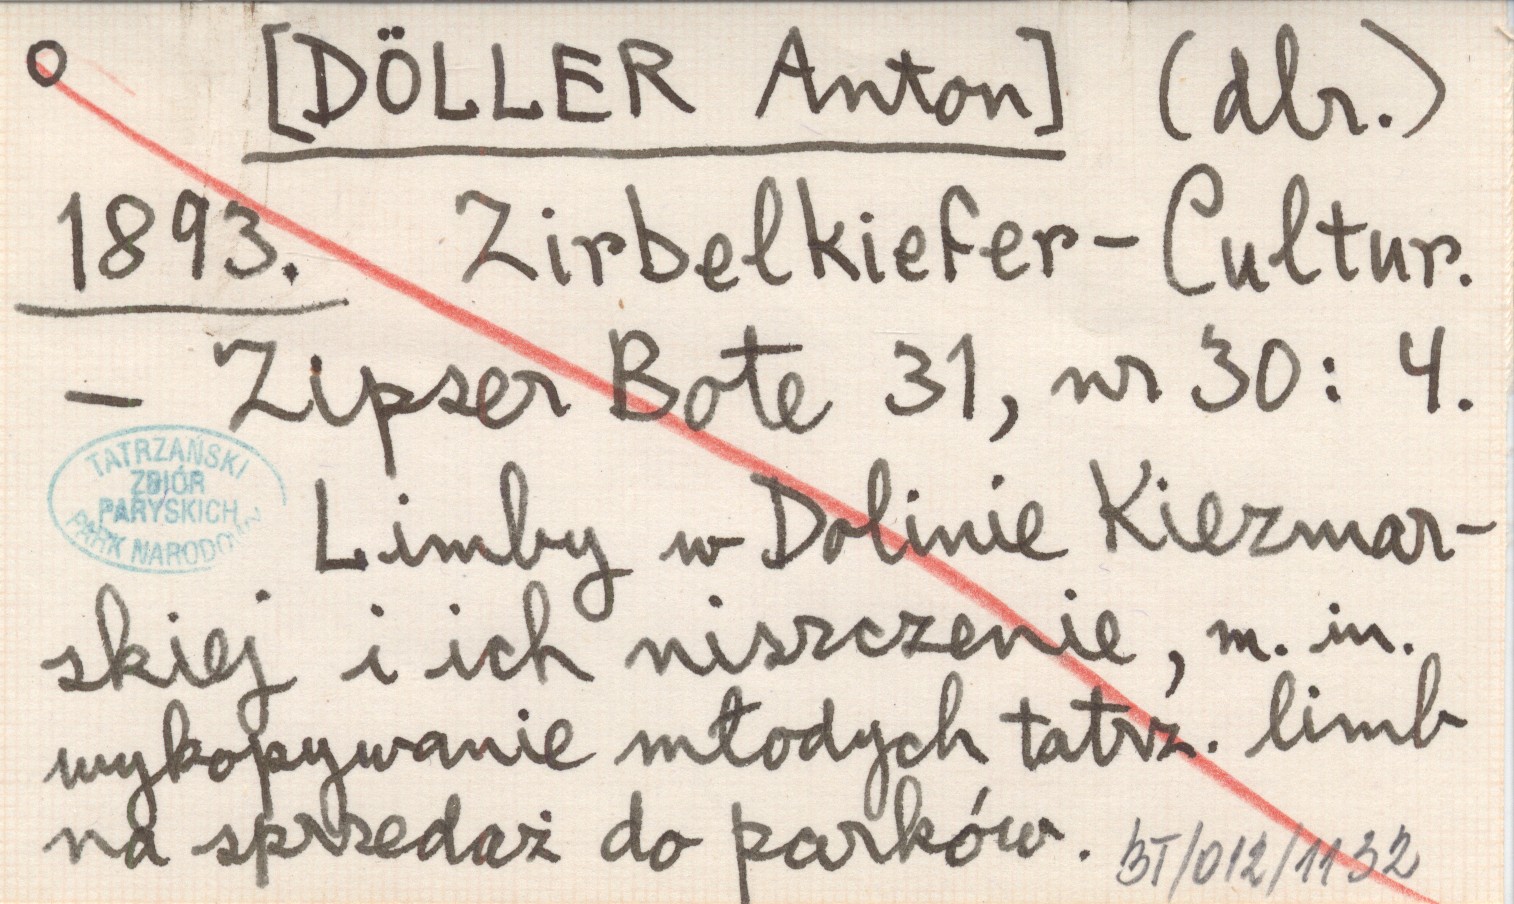 [DÖLLER Anton] (dbr.)
1893. Zirbelkiefer-Cultur.
– Zipser Bote 31, nr 30: 4.
TATRZAŃSKI
ZBIÓR
PARYSKICH
PARK NARODOWY
Limby w Dolinie Kiezmar-
skiej i ich niszczenie, m. in.
wykopywanie młodych tatrz. limb
na sprzedaż do parków.
BT/012/1132